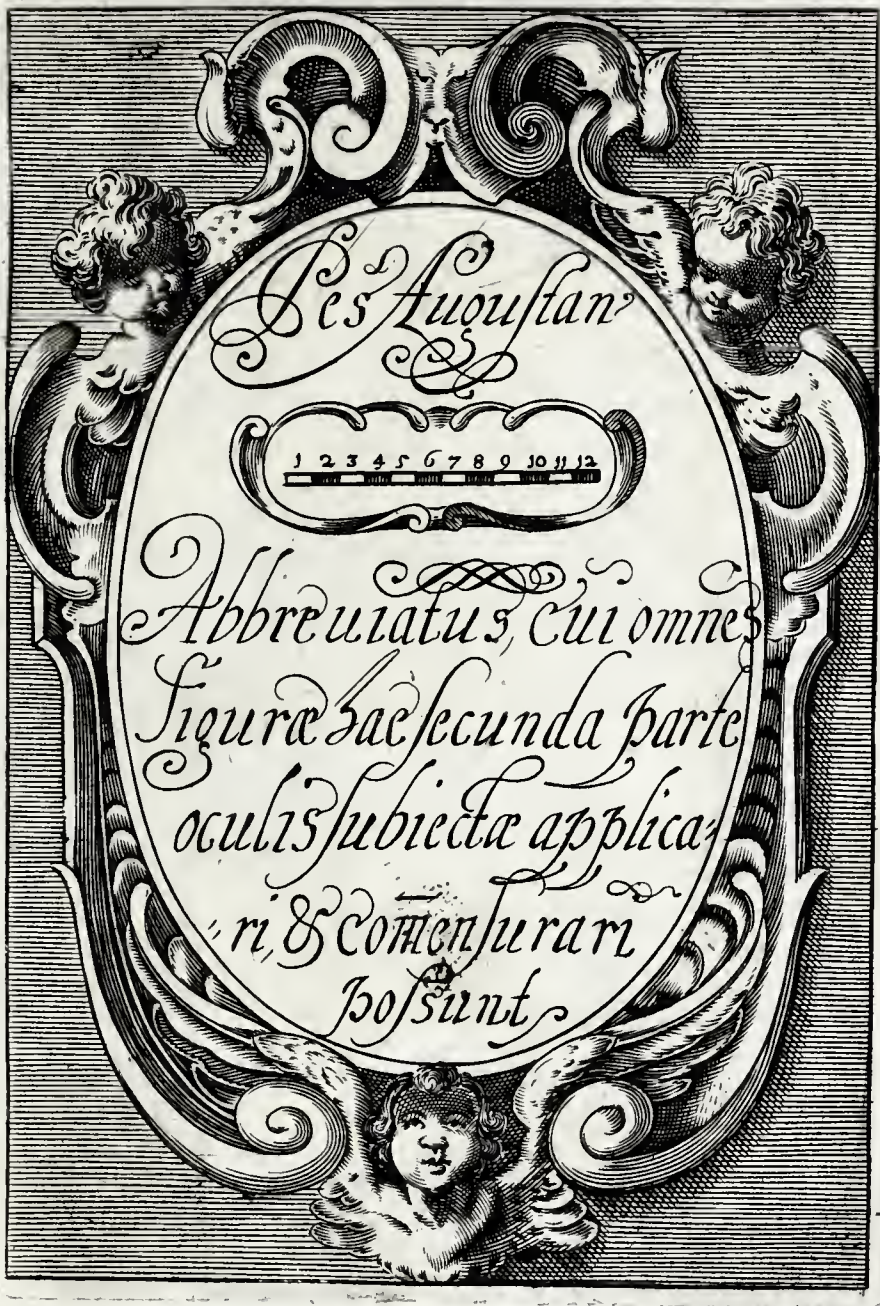 Pes Augustan⁹
1 2 3 4 5 6 7 8 9 10 11 12
Abbreuiatus, cui omnes
figuræ hac secunda parte
oculis subiectæ applica⸗
⸗ri, & com̄ensurari
possunt